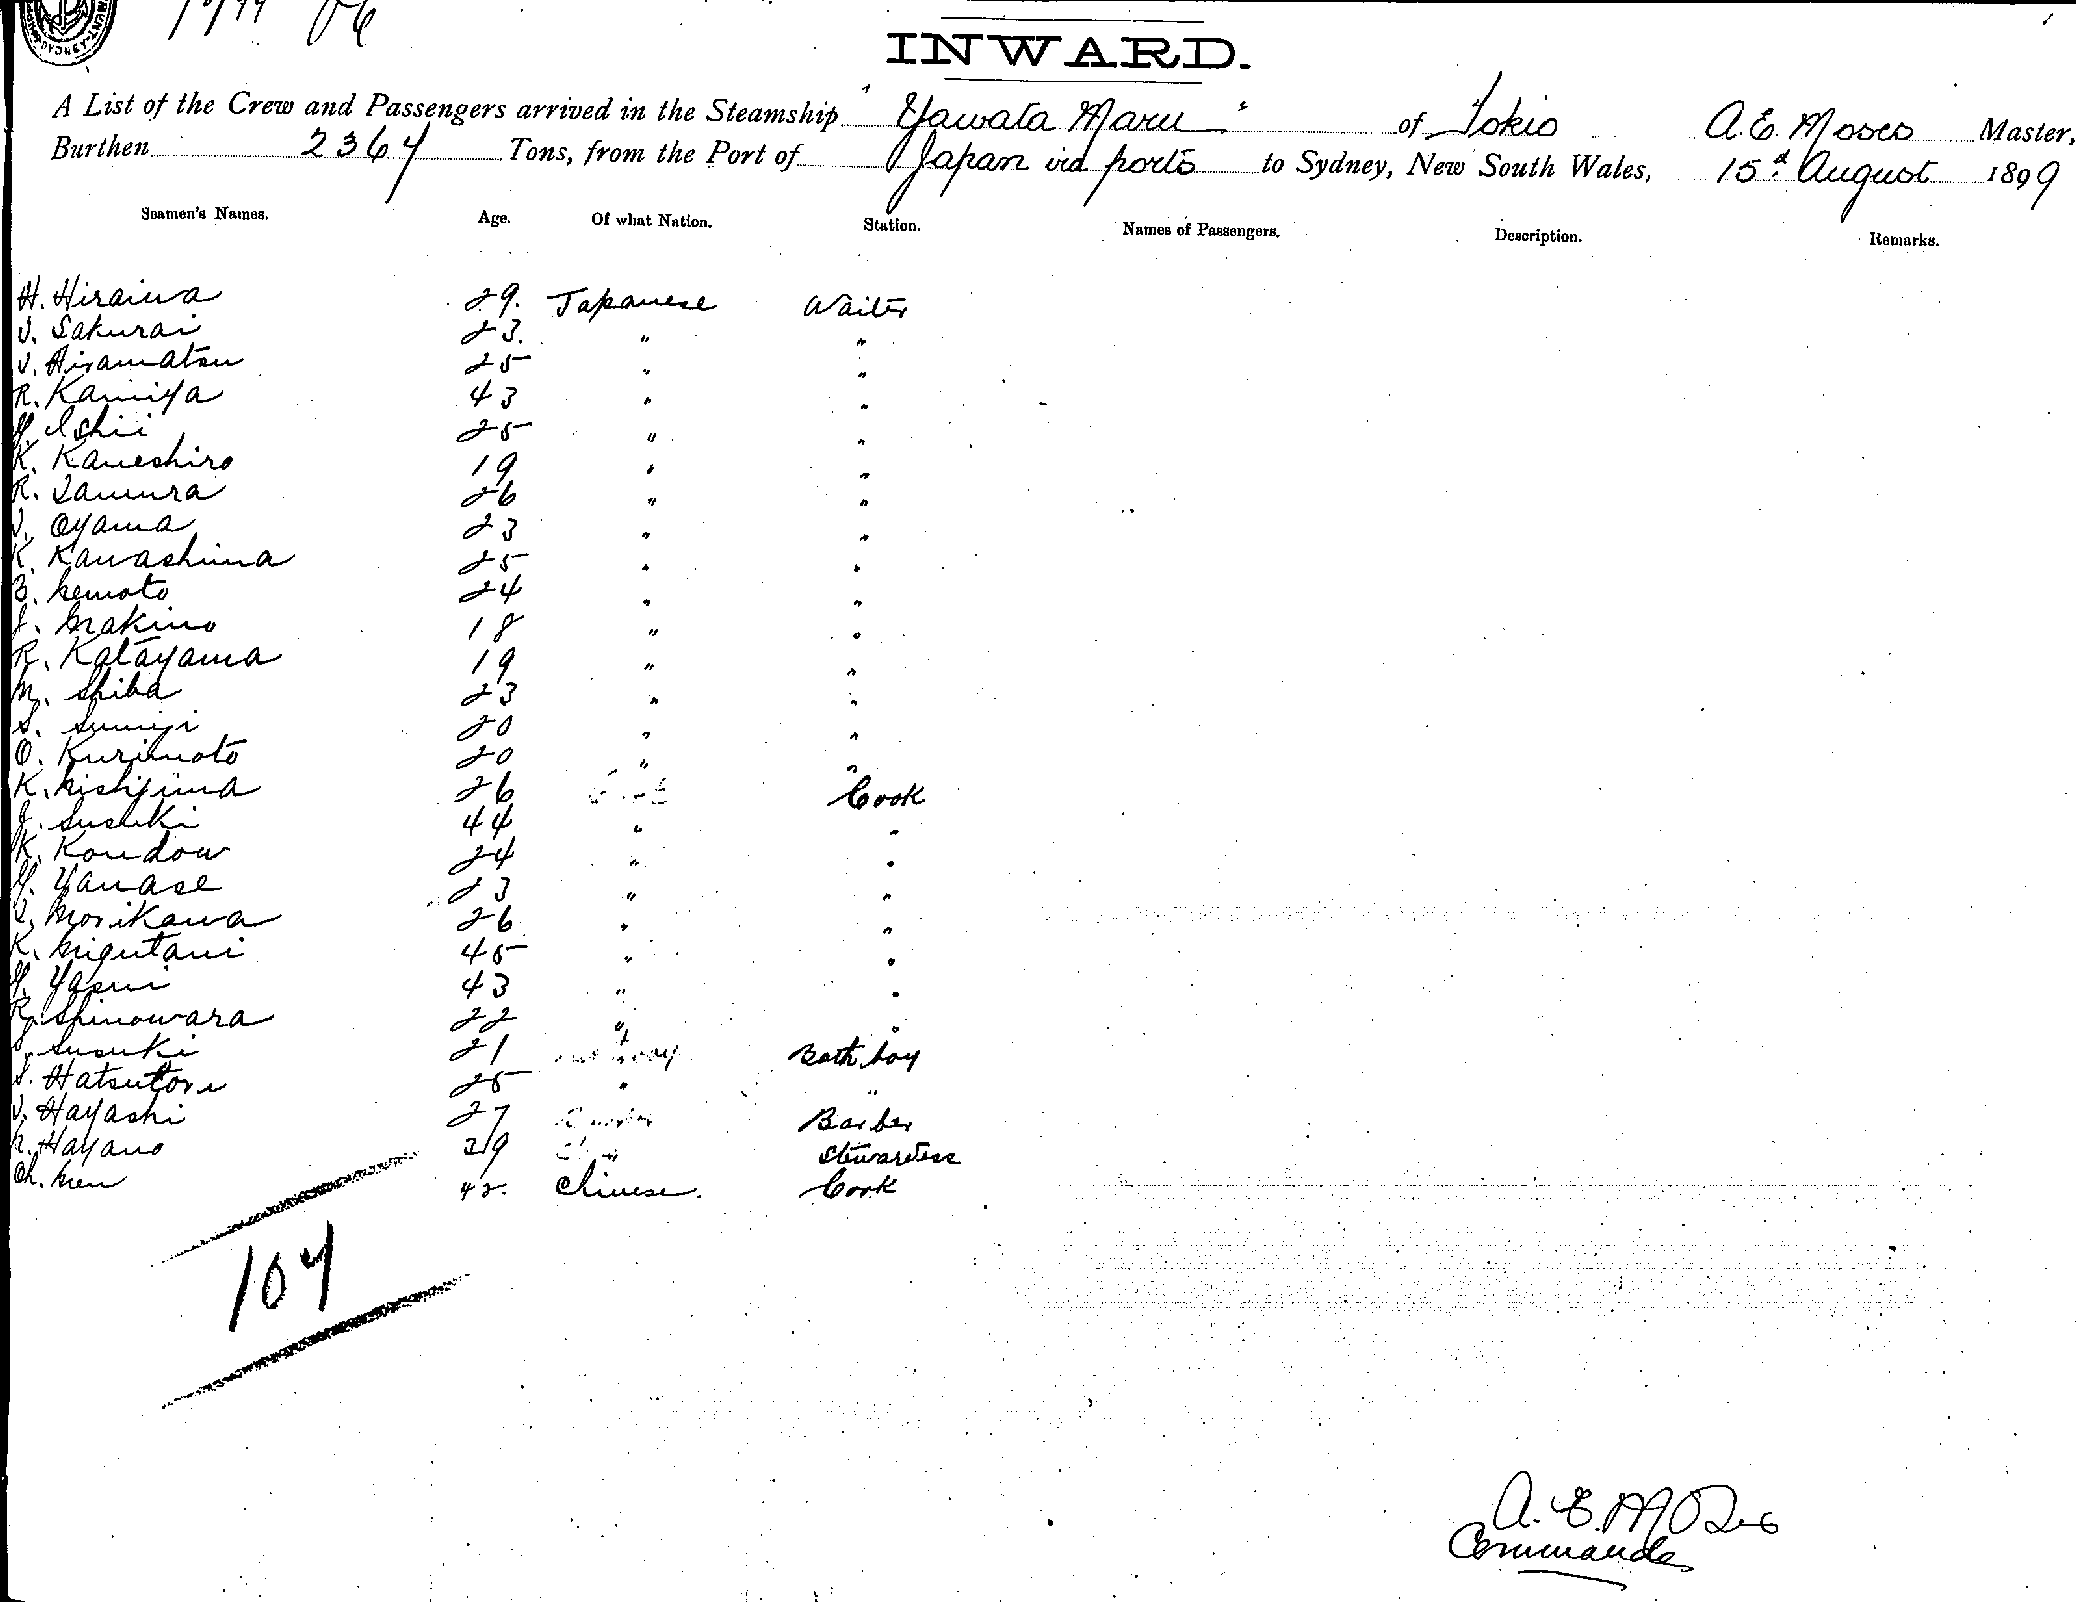 INWARD.
A List of the Crew and Passengers arrived in the Steamship "Yawata Maru" of Tokio A. E. Moses Master,
Burthen 2364 Tons, from the Port of Japan via ports to Sydney, New South Wales, 15th August 1899
Seamen's Names. Age. Of what Nation. Station. Names of Passengers. Description. Remarks.
H. Hiraiwa 29. Japanese Waiter
Sakurai 23. " "
Hiramatsu 25 " "
R. Kamiya 43 " "
Ishii 25 " "
K. Kaneshiro 19 " "
R. Tamura 26 " "
Oyama 23 " "
K. Kawashima 25 " "
B. Nemoto 24 " "
J. Makino 18 " "
R. Katayama 19 " "
M. Shiba 23 " "
S. Sumiji 20 " "
O. Kurimoto 20 " "
K. Nishijima 26 Cook
J. Susuki 44 " "
K. Kondow 24 " "
Yanase 23 " "
Morikawa 26 " "
K. Migutani 45 " "
Yasui 43 " "
Shinowara 22 " "
Susuki 21 Bath boy
S. Hatsutori 25 " "
Hayashi 27 Barber
Hayano 39 Stewardess
Ch. Men 42. Chinese. Cook
104
A. E. Moses
Commander